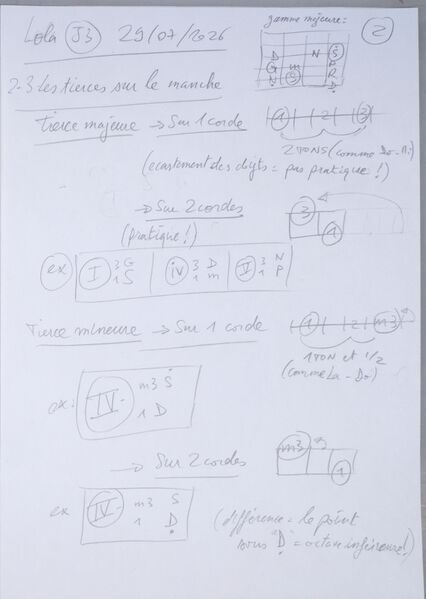 Lola J3 29/07/2026
gamme majeure:
2
D N Ṡ
G m P
N S R
Ḍ
2-3 Les tierces sur le manche
Tierce majeure → Sur 1 corde
1 2 3
2 TONS (comme Do-Mi)
(ecartement des doigts = pas pratique!)
→ Sur 2 cordes
(pratique!)
3
1
ex I 3 G iv 3 D II 3 N
1 S 1 m 1 P
Tierce mineure → Sur 1 corde
1 2 m3
1 TON et 1/2
(comme La-Do)
ex: IV- m3 Ṡ
1 D
→ Sur 2 cordes
m3
1
ex IV- m3 S
1 Ḍ
(différence = le point
sous "Ḍ" = octave inférieure!)